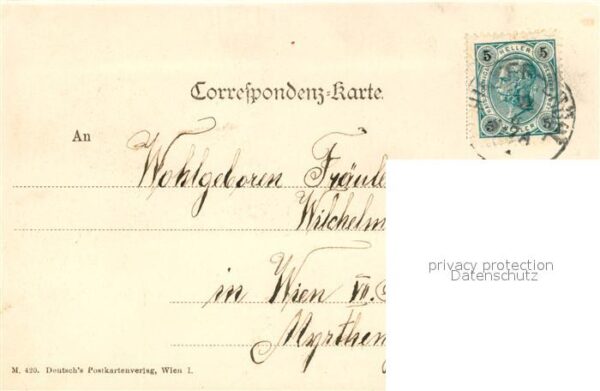 5 HELLER 5
5 HELLER 5
Correspondenz-Karte.
An
Wohlgeboren Fräule
Wilhelm
in Wien VII.
Myrthen
privacy protection
Datenschutz
M. 420. Deutsch's Postkartenverlag, Wien I.